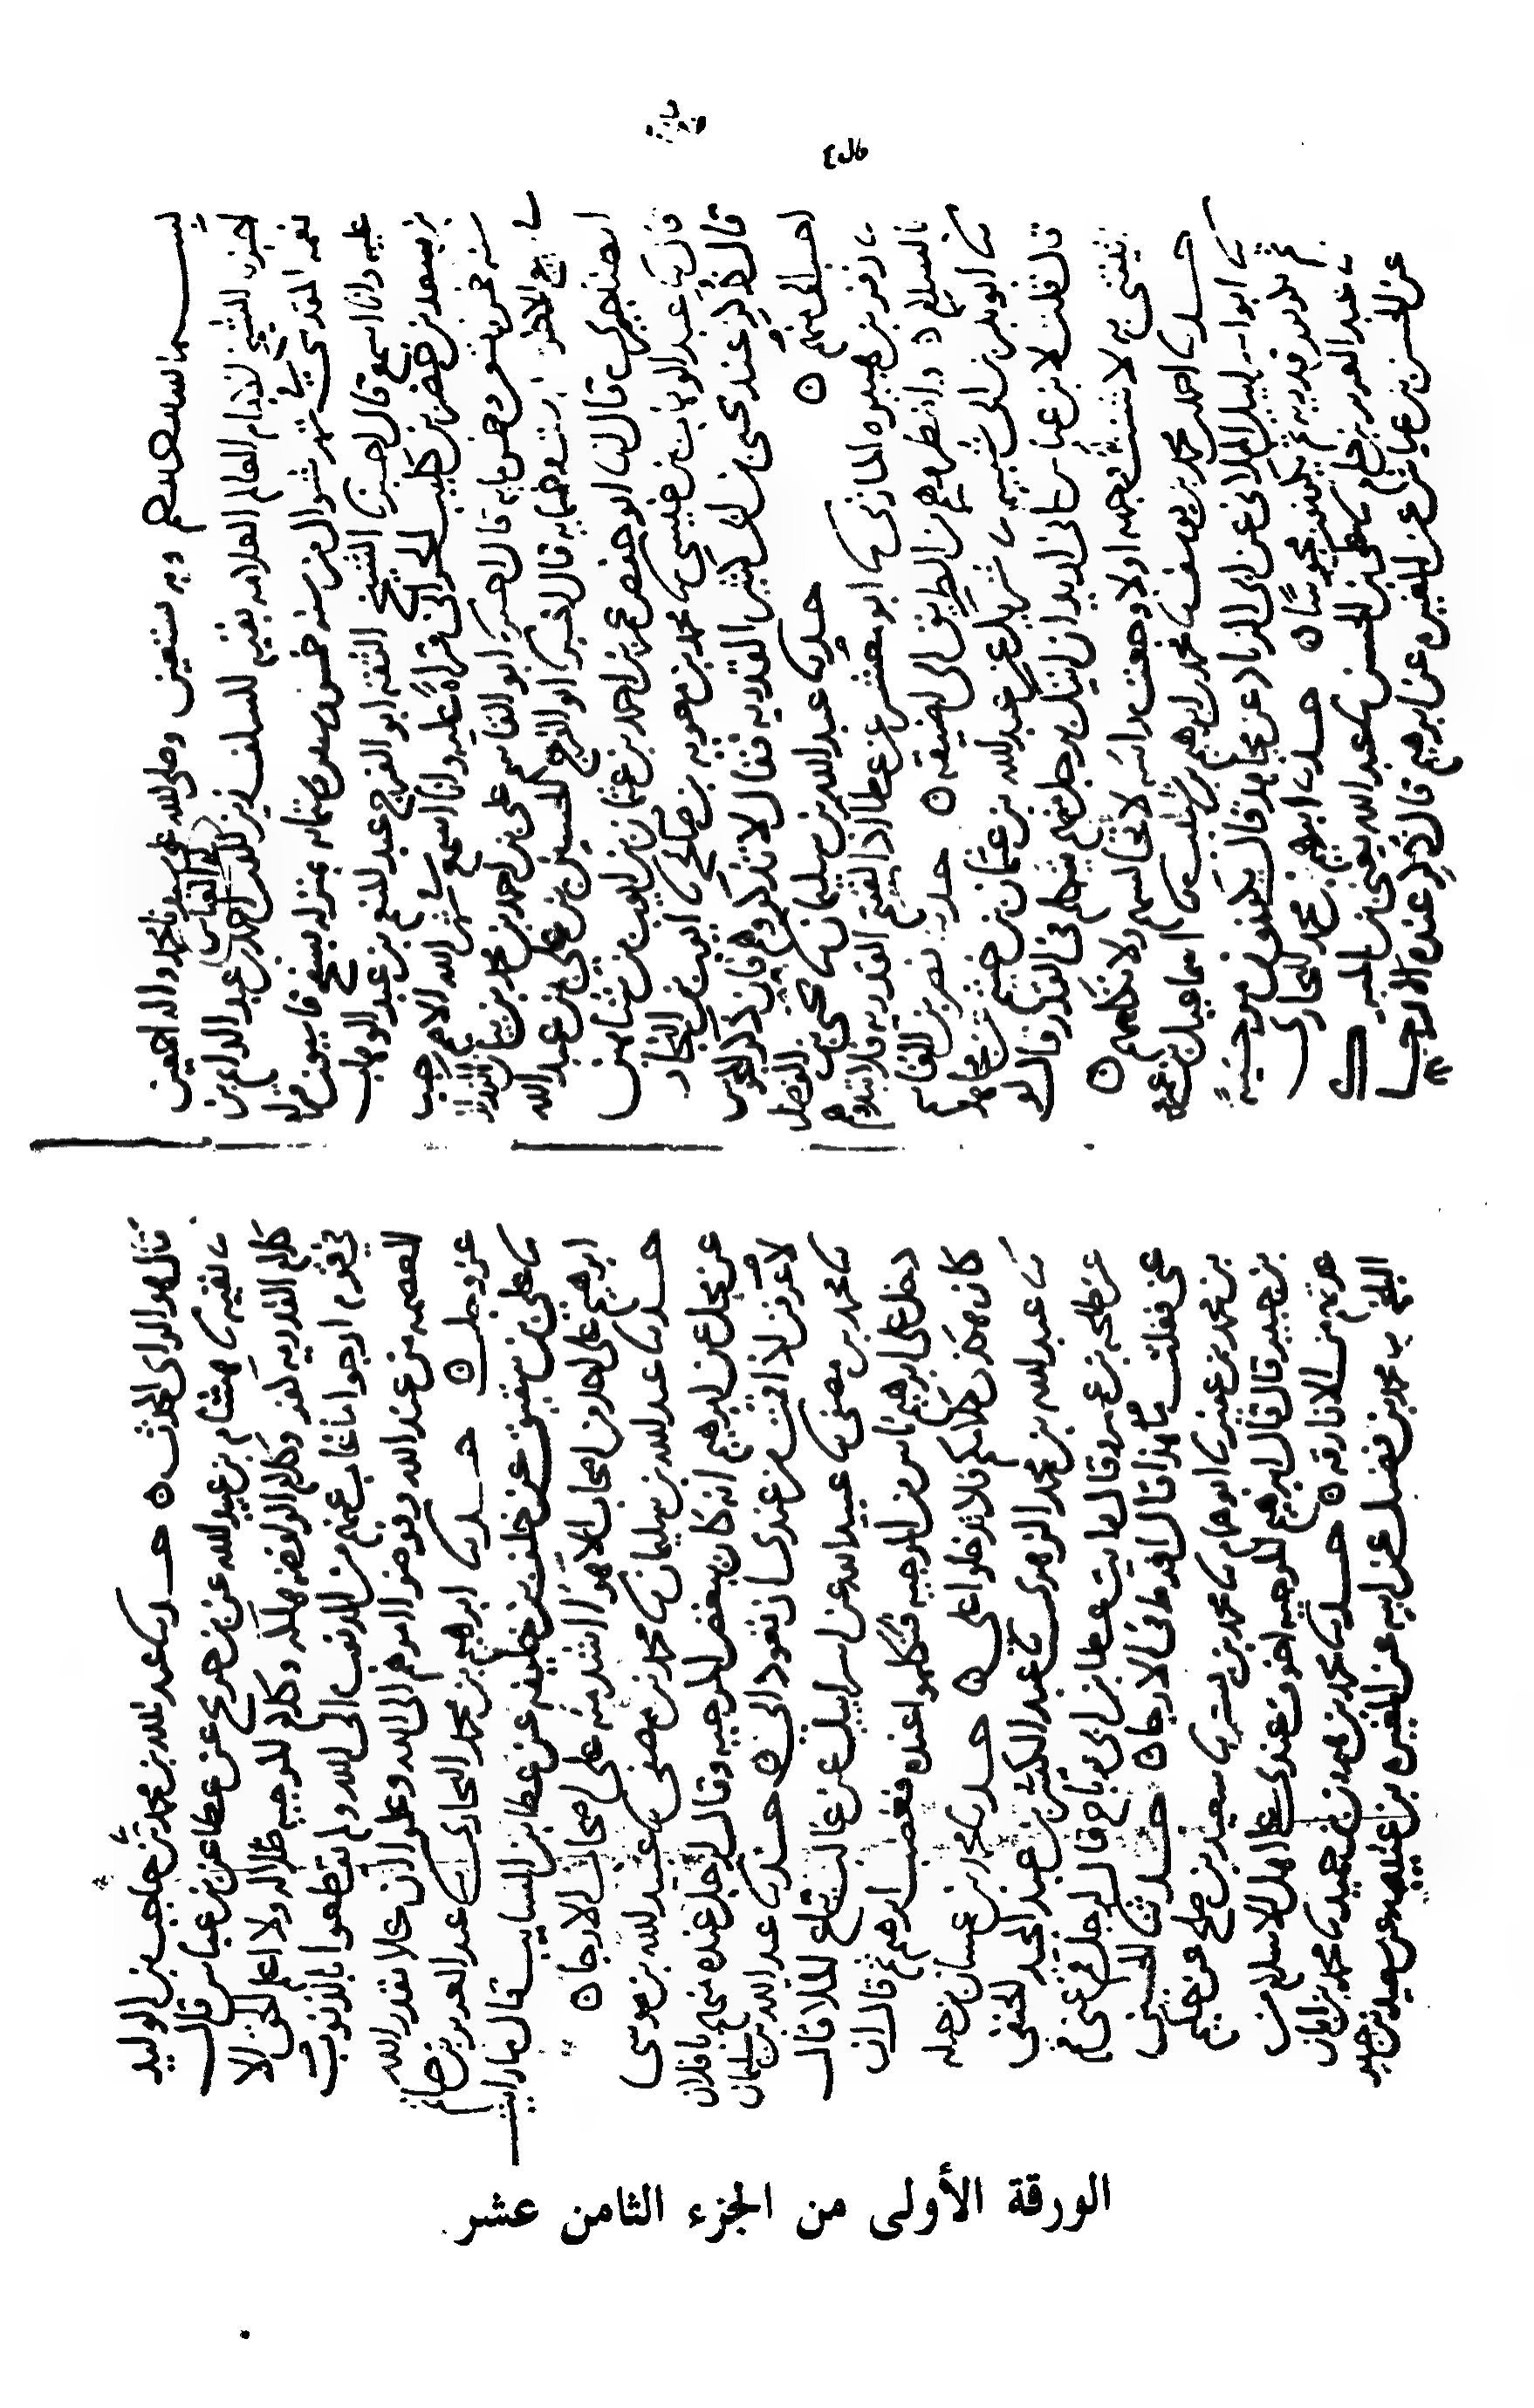 بسم الله الرحمن الرحيم وبه نستعين وصلى الله على سيدنا محمد واله اجمعين
اخبرنا الشيخ الامام العالم العلامه بقيه السلف زين الدين ابو العباس احمد بن عبد الدايم بن
نعمه المقدسي في شهر شوال من سنه خمس وستمائه بمنزله بسفح قاسيون
عليه وانا اسمع قال اخبرنا الشيخ الثقه ابو الفرج عبد المنعم بن عبد الوهاب
بن سعد بن خضر بن كليب الحراني قراة عليه وانا اسمع في شهر الله الاصم رجب
سنه خمس وتسعين وخمس مايه قال اخبرنا ابو القاسم علي بن احمد بن محمد بن بيان
الاخر وخمسمايه قال اخبرنا ابو الفرج الحسين بن علي بن عبيد الله
الطناجيري قال انا ابو حفص عمر بن احمد بن عثمان بن ايوب بن شاهين
قال ثنا عبد الوهاب بن عيسى ثنا محمد بن معويه بن صالح ثنا ايوب بن النجار
قال ذكر عند يحيى بن ابي كثير القدريه فقال لا تذكروهم فان ذكر المجوس
احب الى منهم ه حدثنا عبد الله بن سليمان ثنا يحيى بن الفضل
ثنا زفر بن هبيره المازني ثنا ابو معشر عن عطا اذا لقيتم القدريه فلا تبدوهم
بالسلم واضطروهم من الطريق الى اضيقه ه حدثنا نصر بن القاسم
ثنا ابو بكر بن ابي شيبه ثنا شريك عن عبد الله بن عثمان بن خثيم عن مجاهد
قال قلت لابن عباس اني اريد ان اتيك برجل منهم يتكلم في القدر قال لو
اتيتني به لاشنت وجهه او لاوجعت راسه لا تجالسهم ولا تكلمهم ه
حدثنا احمد بن محمد بن يوسف ثنا محمد بن ابرهيم بن شبيب ثنا اسماعيل بن عمرو
ثنا ابو اسرائيل الملائي عن ابي الزناد عن مجاهد قال يكونون مرجئيه
ثم يكونون قدريه ثم يكونون مجوسا ه حدثنا ابرهيم بن محمد البخاري
ثنا عبد العزيز بن حاتم ثنا علي بن الحسن ثنا عبد الله يعني ابن المبارك
عن الحسن بن عياش عن المغيره عن ابرهيم قال ذكر عنده الارجا
قال هو الراى المحدث ه حدثنا عبد الله بن محمد ثنا حاجب بن الوليد
ثنا بقيه ثنا هشام بن عبيد الله عن ابن جريج عن عطا عن ابن عباس قال
كلام القدريه كفر وكلام الروافض هلكه وكلام المرجيه ضلاله ولا اعلم الحق الا
في قوم ارجوا ما غاب عنهم من الذنوب الى الله ولم يقطعوا بالذنوب
العصمه من عند الله وفوضوا امورهم الى الله وعلموا ان كلا بقدر الله
عز وجل ه حدثنا ابرهيم بن محمد البخاري ثنا عبد العزيز بن حاتم
ثنا علي بن شقيق عن خلف بن خليفه عن عطا بن السايب قال ما رايت
ابرهيم على احد من اصحاب الاهوا اشد منه على اصحاب الارجا ه
حدثنا عبد الله بن سليمان ثنا محمد بن مصفى ثنا عبيد الله بن موسى
عن محل عن ابرهيم انه كان يبغض المرجيه وقال لرجل عنده منهم يا فلان
لا اعرفن اذا قمت من عندي ان تعود الي ه حدثنا عبد الله بن سليمان
ثنا محمد بن مصفى ثنا عبيد الله عن اسرائيل عن غالب قال
دخل على ابرهيم ناس من المرجيه فتكلموا عنده فغضب ابرهيم ثم قال ان
كان هذا كلامكم فلا تدخلوا على ه حدثنا محمد بن غسان بن جبله
ثنا عبد الله بن محمد الزهري ثنا عبد الكبير بن عبد المجيد الحنفي
عن طلحه بن عمرو قال رايت عطا بن ابي رباح قال لرجل قم عني قم
عني فقلت ما هذا قال افرط في الارجا ه حدثنا الحسين
بن محمد بن عفير ثنا ابو همام ثنا محمد بن بشر ثنا سعيد بن صلح عن حكيم
بن جبير قال قال ابرهيم المرجيه اخوف عندي على اهل الاسلام من
عدتهم من الازارقه ه حدثنا محمد بن هرون بن حميد ثنا محمد بن ابان
البلخي ثنا محمد بن فضيل عن ابيه عن المغيره بن عتيبه عن سعيد بن جبير
الورقة الأولى من الجزء الثامن عشر